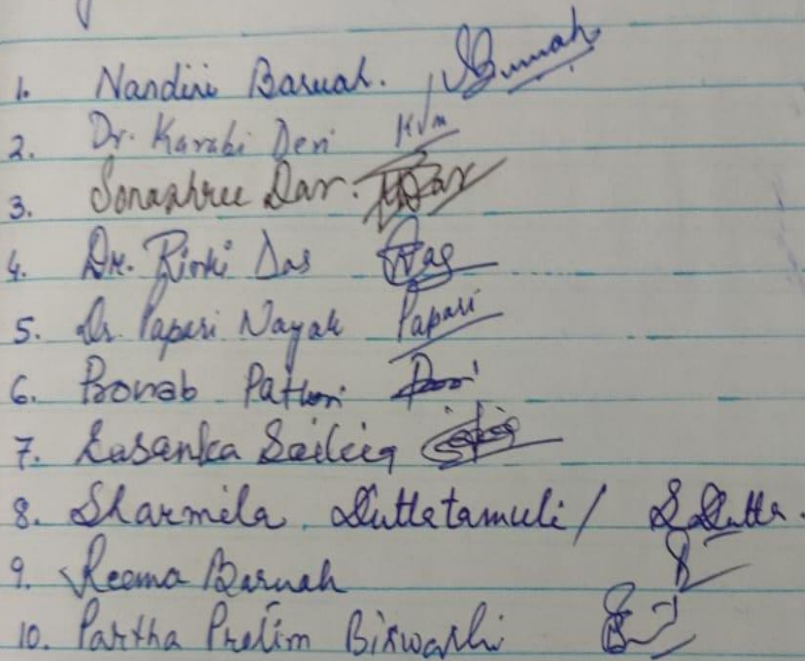 1. Nandini Baruah. NBaruah
2. Dr. Karabi Devi
3. Sonashree Das. Das
4. Dr. Rinki Das Das
5. Dr. Papari Nayak Papari
6. Pronab Pathori
7. Sasanka Saikia
8. Sharmila Duttatamuli / S Dutta.
9. Reema Baruah
10. Partha Pratim